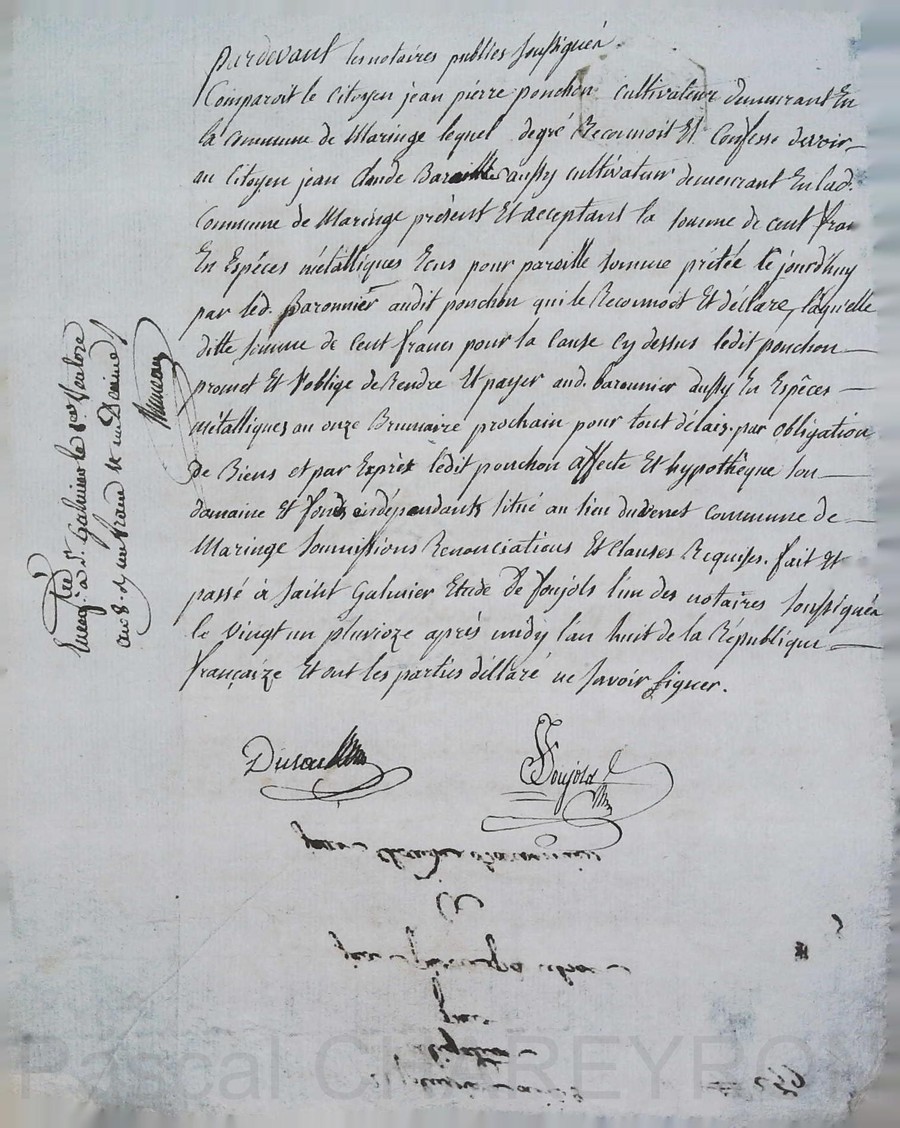 pardevant les notaires publics soussignés.
Comparoit le Citoyen jean pierre ponchon cultivateur demeurant En
la commune de Maringe lequel degré Reconnoit Et Confesse devoir
au Citoyen jean Claude aussy cultivateur demeurant En lad.
Commune de Maringe présent Et acceptant la somme de cent fran
En Espèces métalliques Ecus pour pareille somme prétée Ce jourd'huy
par led. Baronnier audit ponchon qui le Reconnoit Et déclare, laquelle
ditte somme de Cent francs pour la Cause Cy dessus ledit ponchon
promet Et s'oblige de Rendre Et payer aud. baronnier aussy En Espèces
métalliques au onze Brumaire prochain pour tout délais. par obligation
de Biens et par Exprès ledit ponchon affecte Et hypothèque son
domaine Et fonds indépendants situé au lieu duvernet commune de
Maringe Soumissions Renonciations Et Clauses Requises. fait Et
passé à Saint Galmier Etude De Soujols l'un des notaires soussignés
le vingt un pluvioze après midy l'an huit de la République
françaize Et ont les parties déllaré ne savoir signer.
Soujols
Enregtré à St. Galmier le Ventoze
an 8. d. un franc
Claude Baronnier
&
jean pierre ponchon
Pascal CHAREYRON